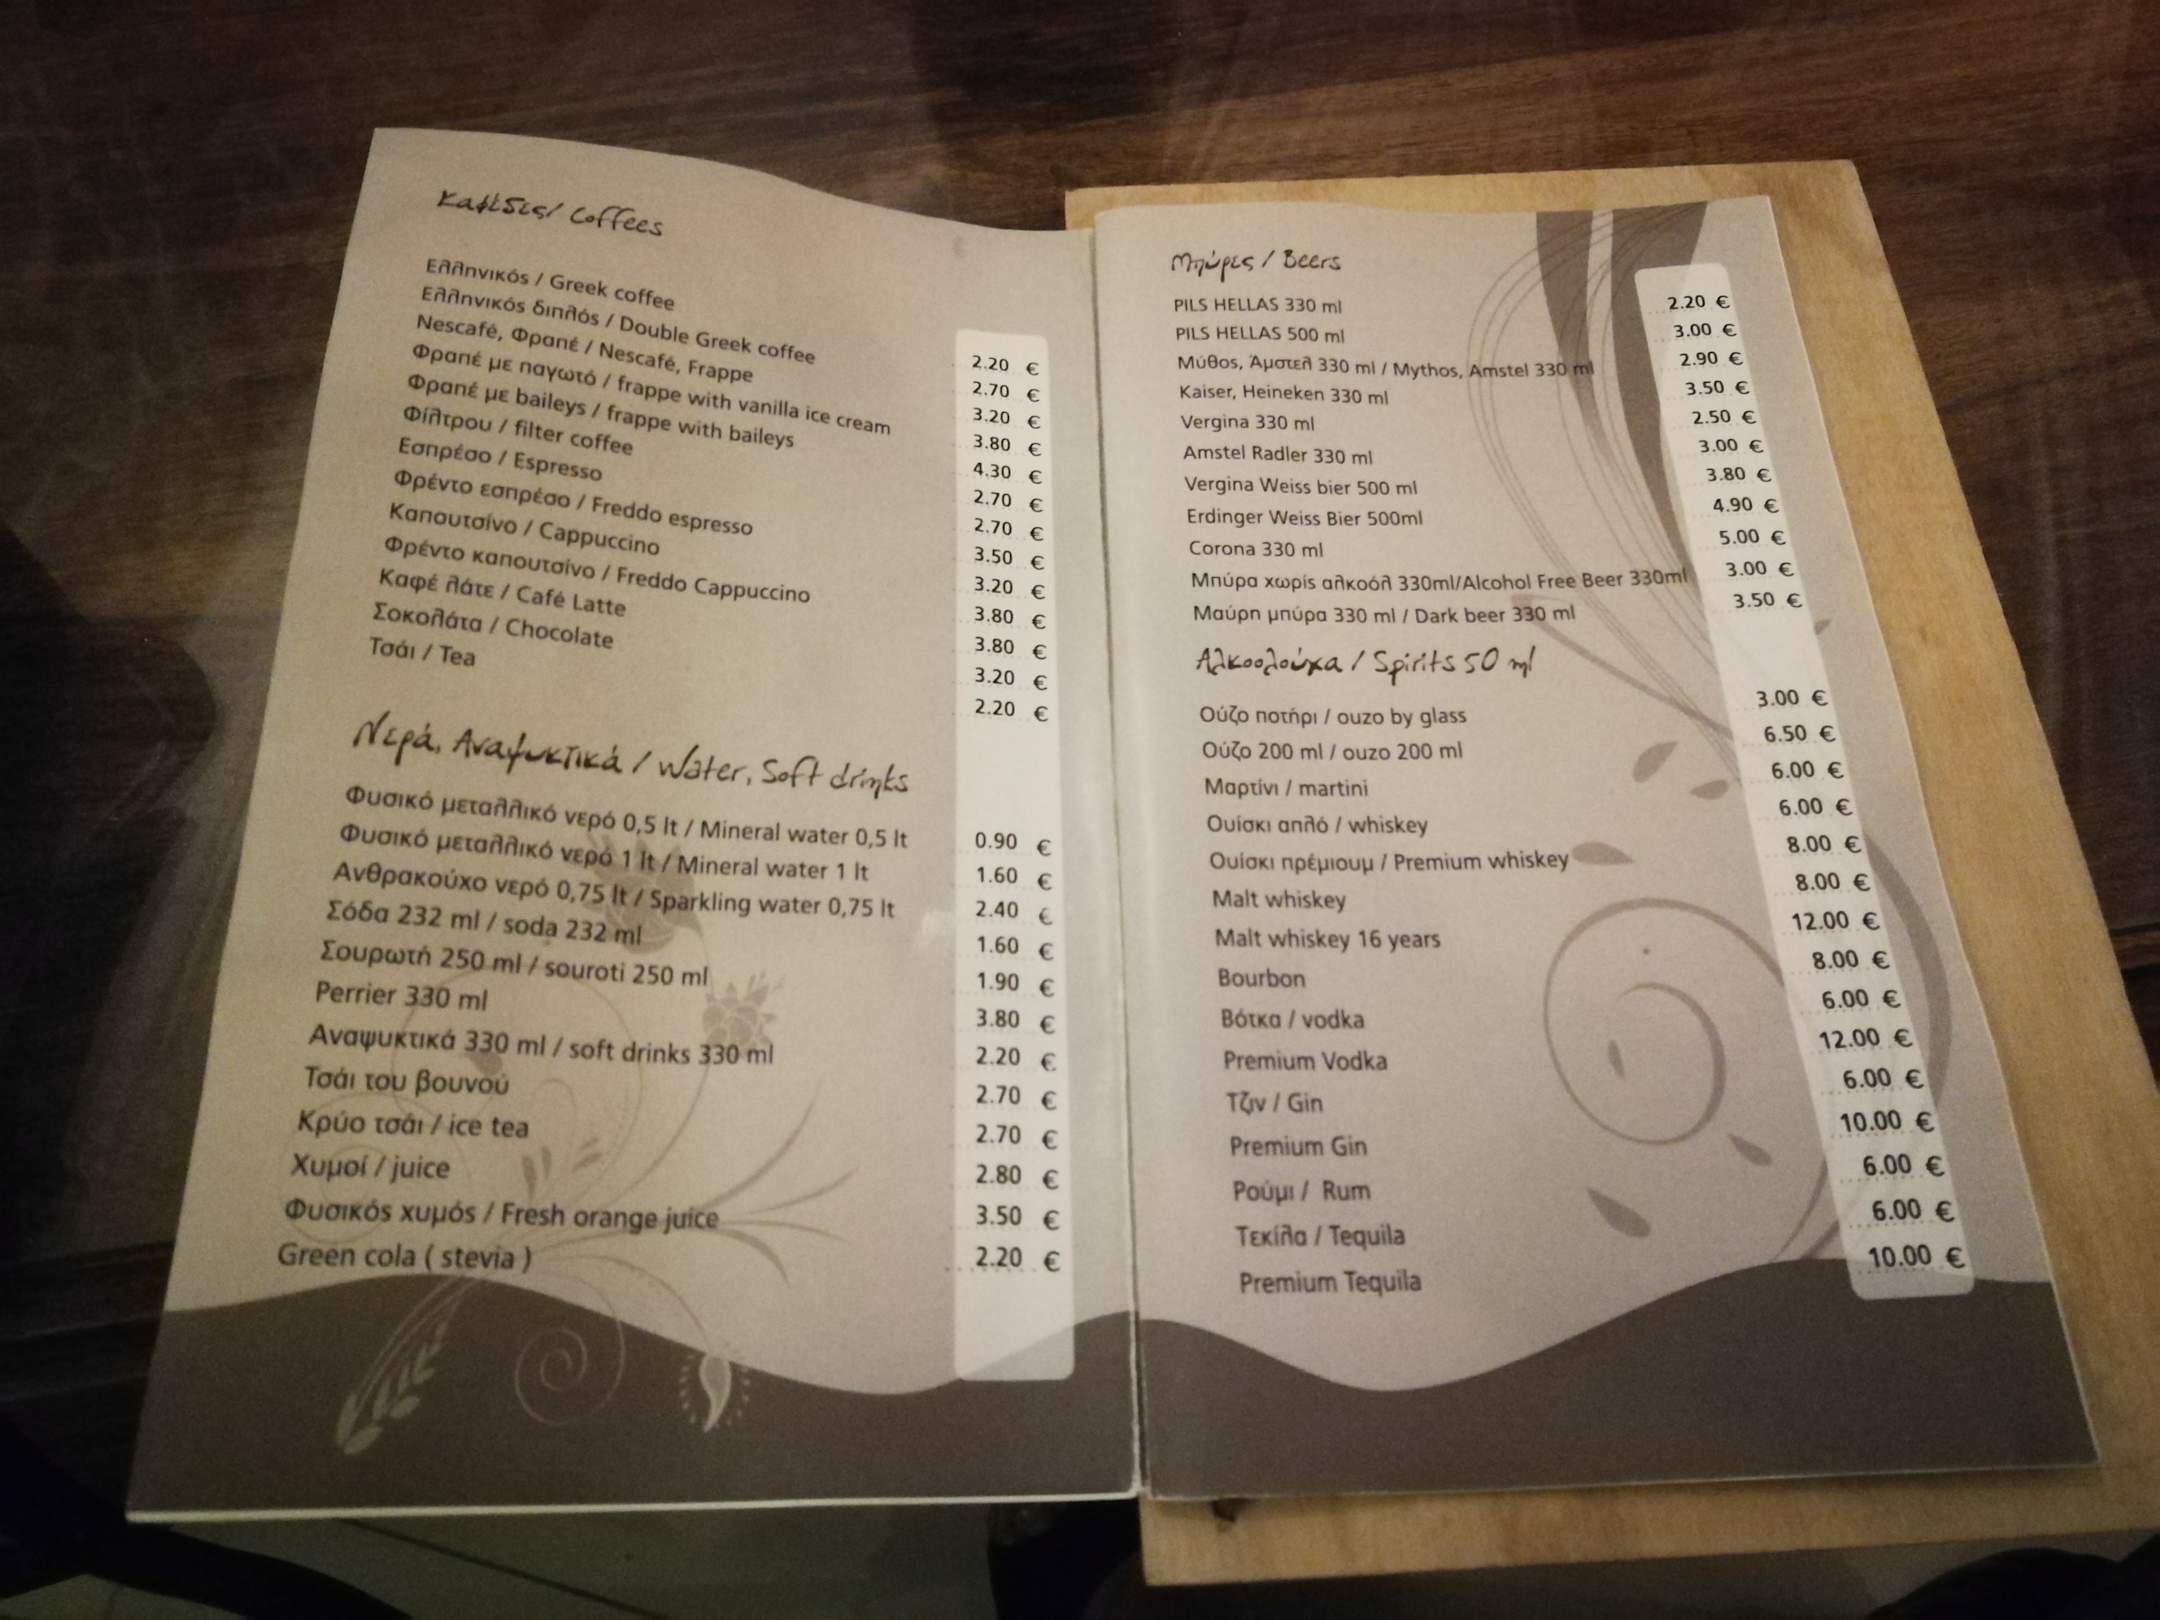 Καφέδες/ Coffees
Ελληνικός / Greek coffee 2.20 €
Ελληνικός διπλός / Double Greek coffee 2.70 €
Nescafé, Φραπέ / Nescafé, Frappe 3.20 €
Φραπέ με παγωτό / frappe with vanilla ice cream 3.80 €
Φραπέ με baileys / frappe with baileys 4.30 €
Φίλτρου / filter coffee 2.70 €
Εσπρέσο / Espresso 2.70 €
Φρέντο εσπρέσο / Freddo espresso 3.50 €
Καπουτσίνο / Cappuccino 3.20 €
Φρέντο καπουτσίνο / Freddo Cappuccino 3.80 €
Καφέ λάτε / Café Latte 3.80 €
Σοκολάτα / Chocolate 3.20 €
Τσάι / Tea 2.20 €
Νερά, Αναψυκτικά / Water, Soft drinks
Φυσικό μεταλλικό νερό 0,5 lt / Mineral water 0,5 lt 0.90 €
Φυσικό μεταλλικό νερό 1 lt / Mineral water 1 lt 1.60 €
Ανθρακούχο νερό 0,75 lt / Sparkling water 0,75 lt 2.40 €
Σόδα 232 ml / soda 232 ml 1.60 €
Σουρωτή 250 ml / souroti 250 ml 1.90 €
Perrier 330 ml 3.80 €
Αναψυκτικά 330 ml / soft drinks 330 ml 2.20 €
Τσάι του βουνού 2.70 €
Κρύο τσάι / ice tea 2.70 €
Χυμοί / juice 2.80 €
Φυσικός χυμός / Fresh orange juice 3.50 €
Green cola ( stevia ) 2.20 €
Μπύρες / Beers
PILS HELLAS 330 ml 2.20 €
PILS HELLAS 500 ml 3.00 €
Μύθος, Άμστελ 330 ml / Mythos, Amstel 330 ml 2.90 €
Kaiser, Heineken 330 ml 3.50 €
Vergina 330 ml 2.50 €
Amstel Radler 330 ml 3.00 €
Vergina Weiss bier 500 ml 3.80 €
Erdinger Weiss Bier 500ml 4.90 €
Corona 330 ml 5.00 €
Μπύρα χωρίς αλκοόλ 330ml/Alcohol Free Beer 330ml 3.00 €
Μαύρη μπύρα 330 ml / Dark beer 330 ml 3.50 €
Αλκοολούχα / Spirits 50 ml
Ούζο ποτήρι / ouzo by glass 3.00 €
Ούζο 200 ml / ouzo 200 ml 6.50 €
Μαρτίνι / martini 6.00 €
Ουίσκι απλό / whiskey 6.00 €
Ουίσκι πρέμιουμ / Premium whiskey 8.00 €
Malt whiskey 8.00 €
Malt whiskey 16 years 12.00 €
Bourbon 8.00 €
Βότκα / vodka 6.00 €
Premium Vodka 12.00 €
Τζιν / Gin 6.00 €
Premium Gin 10.00 €
Ρούμι / Rum 6.00 €
Τεκίλα / Tequila 6.00 €
Premium Tequila 10.00 €